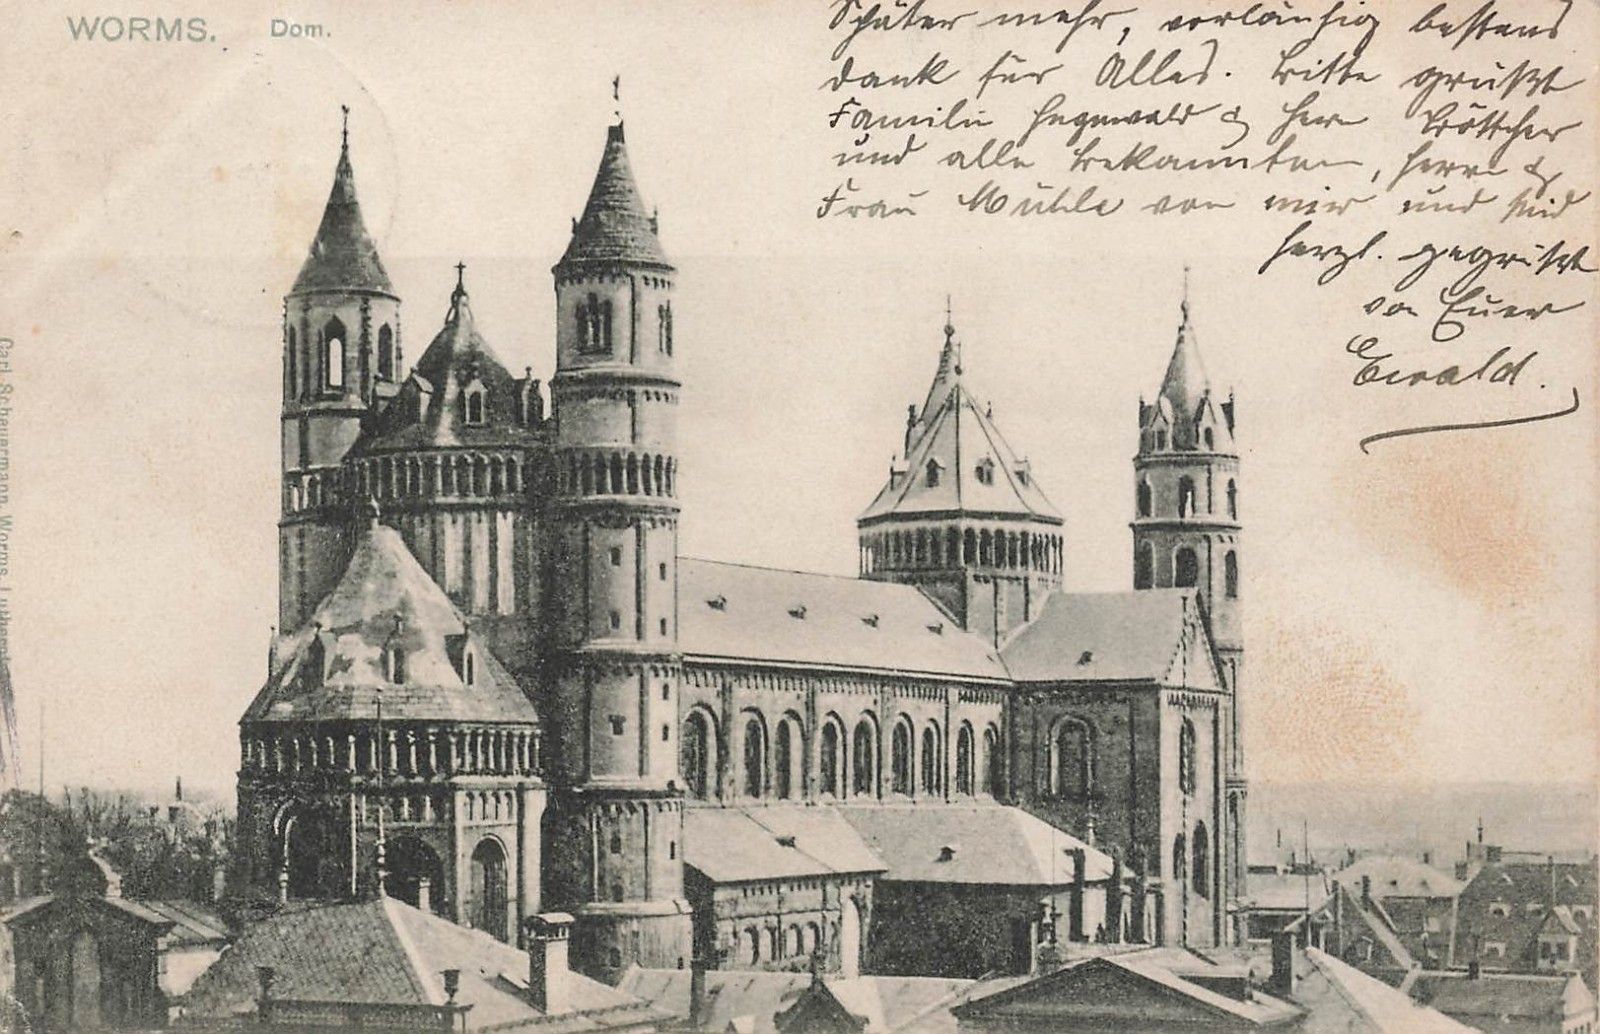 WORMS. Dom.
Später mehr, vorläufig bestens
dank für Alles. Bitte grüßt
Familie Hegewald & Herrn Böttcher
und alle Bekannten, Herrn &
Frau Mühle von mir und seid
herzl. gegrüßt
von Euer
Ewald.
Carl Scheuermann, Worms,